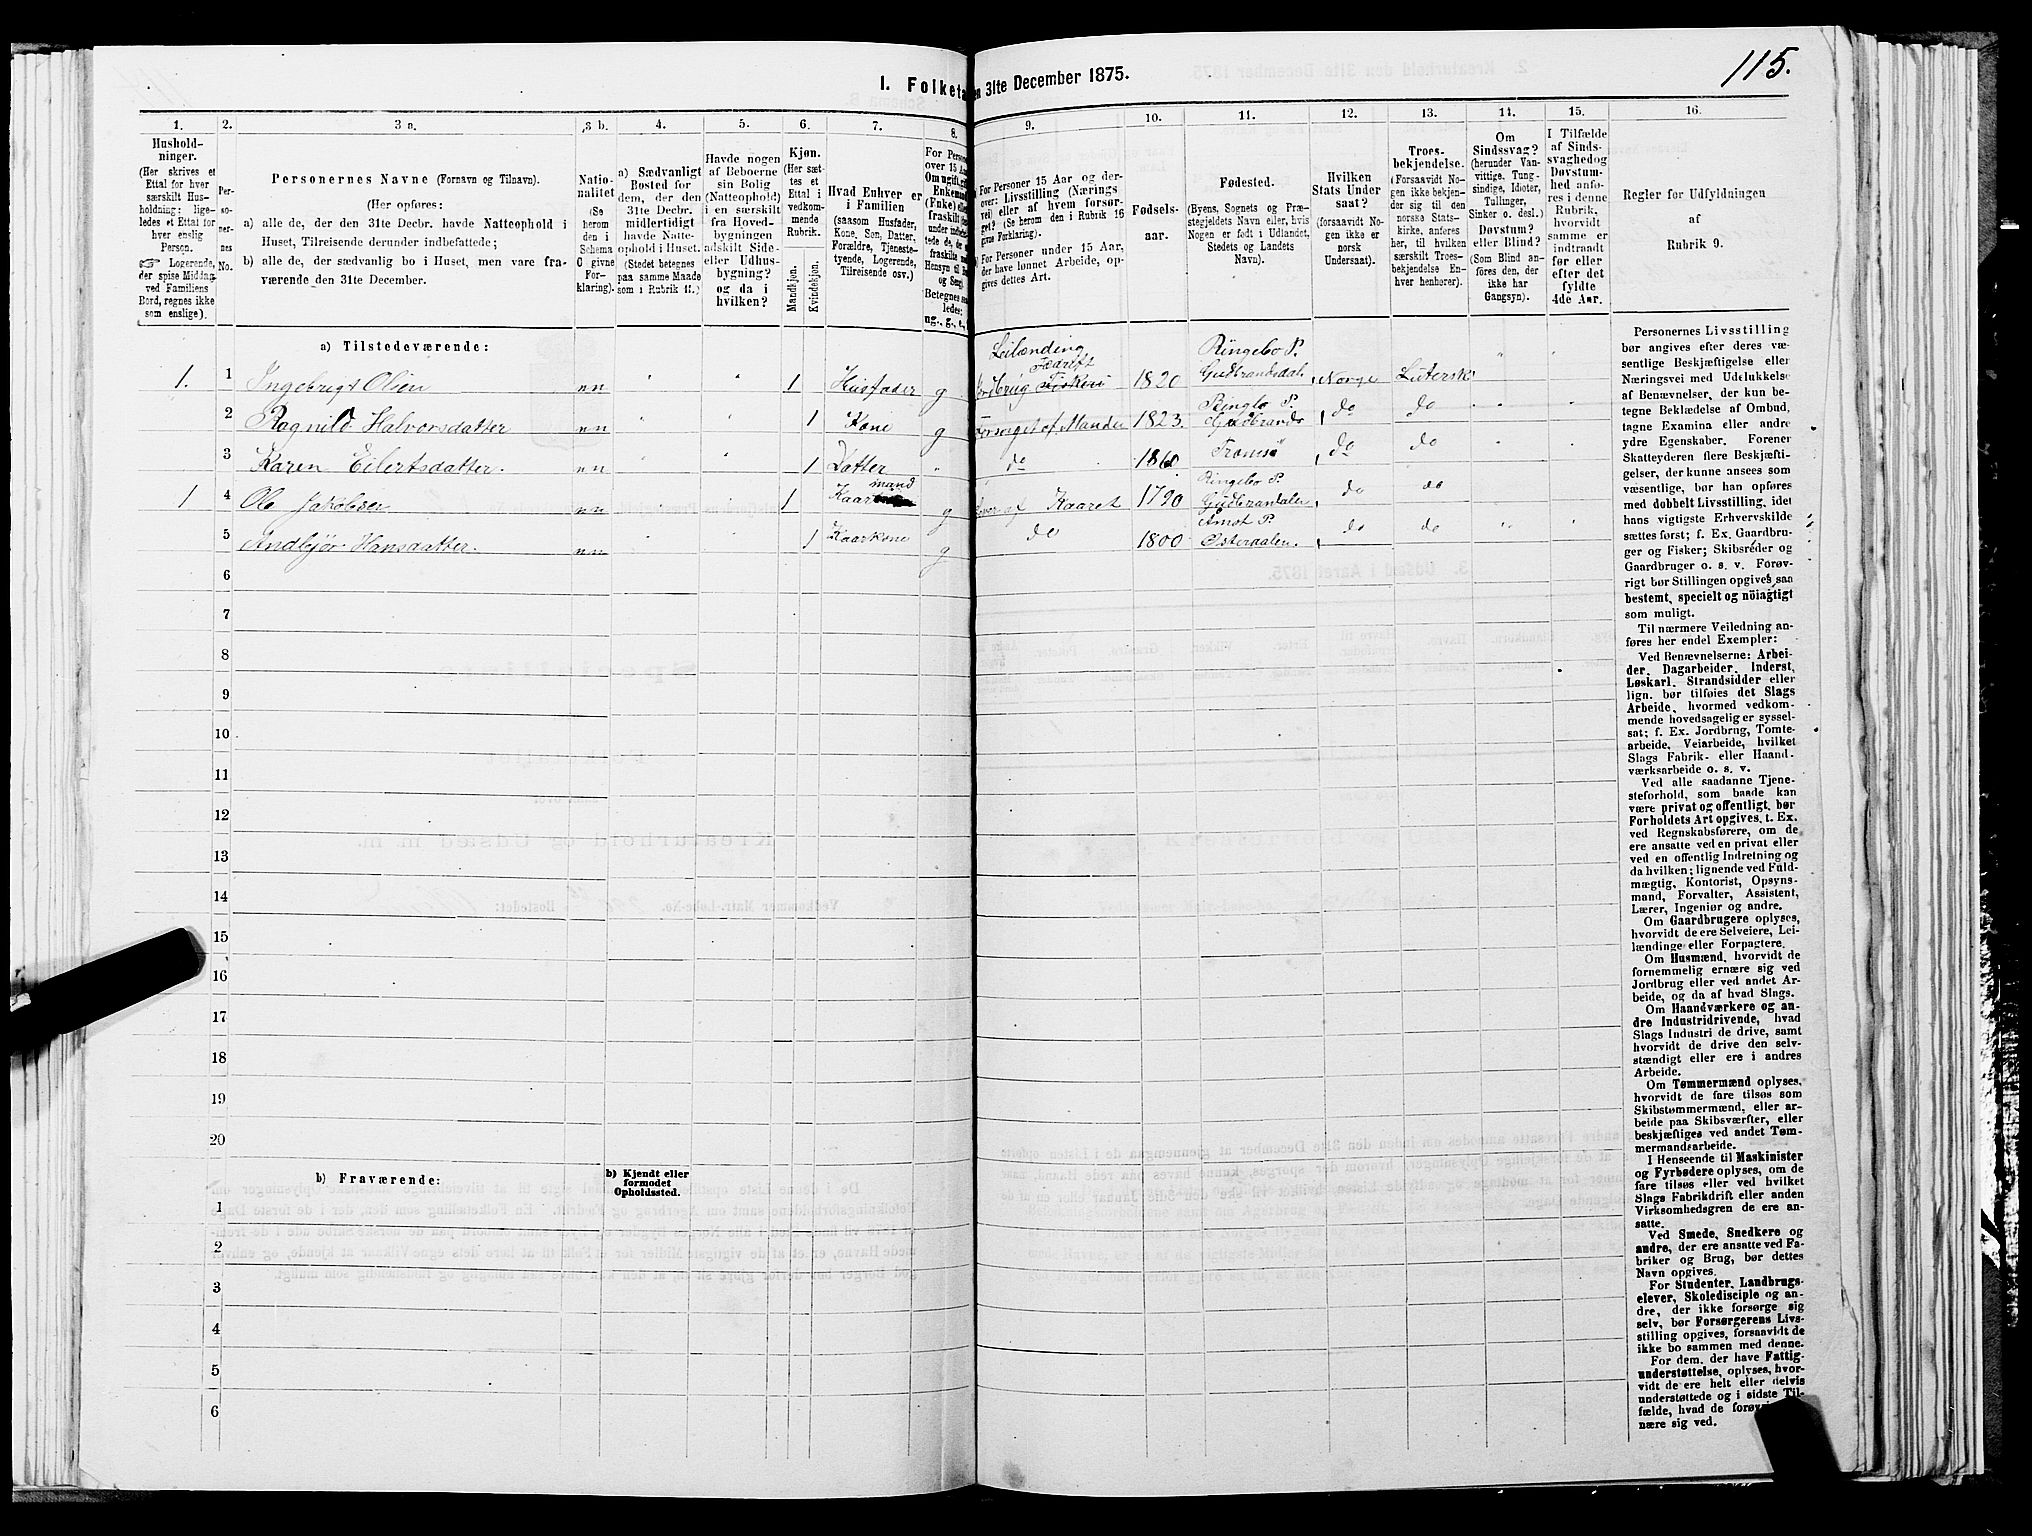 115.
I. Folketa
en 31te December 1875.
1.
2.
3 a.
3 b.
4.
5.
6.
7.
8.
9.
10.
11.
12.
13.
14.
15.
16.
Hushold-
ninger.
(Her skrives et
Ettal for hver
særskilt Hus-
holdning; lige-
ledes et Ettal for
hver enslig
Person.
☞ Logerende,
der spise Middag
ved Familiens
Bord, regnes ikke
som enslige).
Per-
so-
ner-
nes
No.
Personernes Navne (Fornavn og Tilnavn).
(Her opføres:
a) alle de, der den 31te Decbr. havde Natteophold i
Huset, Tilreisende derunder indbefattede;
b) alle de, der sædvanlig bo i Huset, men vare fra-
værende den 31te December.
Natio-
nalitet
(Se
herom
den i
Schema
C givne
For-
klaring).
a) Sædvanligt
Bosted for
dem, der den
31te Decbr.
midlertidigt
havde Natte-
ophold i Huset.
(Stedet betegnes
paa samme Maade
som i Rubrik 11.)
Havde nogen
af Beboerne
sin Bolig
(Natteophold)
i en særskilt
fra Hoved-
bygningen
adskilt Side-
eller Udhus-
bygning?
og da i
hvilken?
Kjøn.
(Her sæt-
tes et
Ettal i
vedkom-
mende
Rubrik.
Mandkjøn.
Kvindekjøn.
Hvad Enhver er
i Familien
(saasom Husfader,
Kone, Søn, Datter,
Forældre, Tjeneste-
tyende, Logerende,
Tilreisende osv.)
For Persone
over 15 Aar
Om ugift, gi
Enkemand
(Enke) elle
fraskilt
Betegnes saa
ledes:
ug., g., e., f
a) For Personer 15 Aar og der-
over: Livsstilling (Nærings
vei) eller af hvem forsør-
get? (Se herom den i Rubrik 16
givne Forklaring).
b) For Personer under 15 Aar,
der have lønnet Arbeide, op-
gives dettes Art.
Fødsels-
aar.
Fødested.
(Byens, Sognets og Præ-
stegjeldets Navn eller, hvis
Nogen er født i Udlandet,
Stedets og Landets
Navn).
Hvilken
Stats Under
saat?
(forsaavidt No-
gen ikke er
norsk
Undersaat).
Troes-
bekjendelse.
(Forsaavidt No-
gen ikke bekjen-
der sig til den
norske Stats-
kirke, anføres
her, til hvilken
særskilt Troes-
bekjendelse En-
hver henhører).
Om
Sindssvag?
(herunder Van-
vittige, Tung-
sindige, Idioter,
Tullinger,
Sinker o. desl.)
Døvstum?
eller Blind?
(Som Blind an-
føres den, der
ikke har
Gangsyn).
I Tilfælde
af Sinds-
svaghed og
Døvstum-
hed anfø-
res i denne
Rubrik,
hvorvidt
samme er
indtraadt
før eller
efter det
fyldte
4de Aar.
Regler for Udfyldningen
af
Rubrik 9.
a) Tilstedeværende:
1. 1 Ingebrigt Olsen nn " " 1 Husfader g Leilænding Jordbrug Fædrift 1820 Ringebo P. Gudbrandsdal Norge Lutersk
2 Ragnild Halvorsdatter nn " " 1 Kone g Forsørget af Manden 1823. Ringbo P. Gudbrands do do
3 Karen Eilertsdatter. nn " " 1 Datter " do Tromsø do do
1 4 Ole Jakobsen nn " " 1 Kaarmand g Lever af Kaaret 1790 Ringebo P. Gudbrandalen do do
5 Hansdatter. nn " " 1 Kaarkone g do 1800 Åmot P. Østerdalen. do do
6
7
8
9
10
11
12
13
14
15
16
17
18
19
20
b) Fraværende:
b) Kjendt eller
formodet
Opholdssted.
1
2
3
4
5
6
Personernes Livsstilling
bør angives efter deres væ-
sentlige Beskjæftigelse eller
Næringsvei med Udelukkelse
af Benævnelser, der kun be-
tegne Beklædelse af Ombud,
tagne Examina eller andre
ydre Egenskaber. Forener
Skatteyderen flere Beskjæfti-
gelser, der kunne ansees som
væsentlige, bør han opføres
med dobbelt Livsstilling, idet
hans vigtigste Erhvervskilde
sættes først; f. Ex. Gaardbru-
ger og Fisker; Skibsreder og
Gaardbruger o. s. v. Forøv-
rigt bør Stillingen opgives saa
bestemt, specielt og nöiagtigt
som muligt.
Til nærmere Veiledning an-
føres her endel Exempler:
Ved Benævnelserne: Arbei-
der, Dagarbeider, Inderst,
Løskarl, Strandsidder eller
lign. bør tilføies det Slags
Arbeide, hvormed vedkom-
mende hovedsagelig er syssel-
sat; f. Ex. Jordbrug, Tomte-
arbeide, Veiarbeide, hvilket
Slags Fabrik- eller Haand-
værksarbeide o. s. v.
Ved alle saadanne Tjene-
steforhold, som baade kan
være privat og offentligt, bør
Forholdets Art opgives. t. Ex.
ved Regnskabsførere, om de
ere ansatte ved en privat eller
ved en offentlig Indretning og
da hvilken; lignende ved Fuld-
mægtig, Kontorist, Opsyns-
mand, Forvalter, Assistent,
Lærer, Ingeniør og andre.
Om Gaardbrugere oplyses,
hvorvidt de ere Selveiere, Lei-
lændinge eller Forpagtere.
Om Husmænd, hvorvidt de
fornemmelig ernære sig ved
Jordbrug eller ved andet Ar-
beide, og da af hvad Slags.
Om Haandværkere og an-
dre Industridrivende, hvad
Slags Industri de drive, samt
hvorvidt de drive den selv-
stændigt eller ere i andres
Arbeide.
Om Tømmermænd oplyses,
hvorvidt de fare tilsøs som
Skibstømmermænd, eller ar-
beide paa Skibsværfter, eller
beskjæftiges ved andet Tøm-
mermandsarbeide.
I Henseende til Maskinister
og Fyrbødere oplyses, om de
fare tilsøs eller ved hvilket
Slags Fabrikdrift eller anden
Virksomhedsgren de ere an-
satte.
Ved Smede, Snedkere og
andre, der ere ansatte ved Fa-
briker og Brug, bør dettes
Navn opgives.
For Studenter, Landbrugs-
elever, Skoledisciple og an-
dre, der ikke forsørge sig
selv, bør Forsørgerens Livs-
stilling opgives, forsaavidt de
ikke bo sammen med denne.
For dem, der have Fattig-
understøttelse, oplyses, hvor-
vidt de ere helt eller delvis
understøttede og i sidste Til-
fælde, hvad de forøvrigt
nære sig ved.